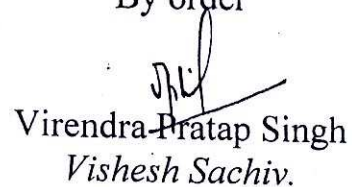 By order
Virendra Pratap Singh
Vishesh Sachiv.